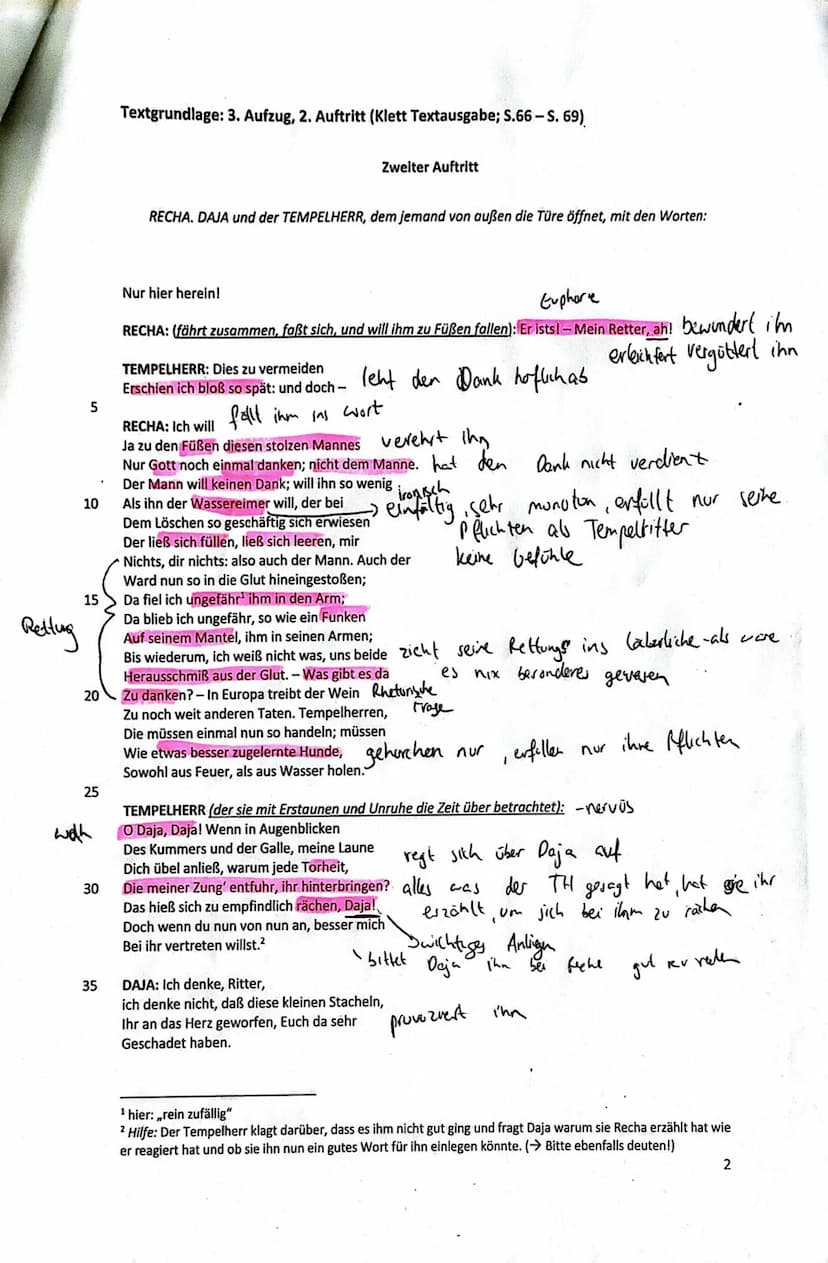 Textgrundlage: 3. Aufzug, 2. Auftritt (Klett Textausgabe; S.66 – S. 69)
Zweiter Auftritt
RECHA. DAJA und der TEMPELHERR, dem jemand von außen die Türe öffnet, mit den Worten:
Nur hier herein!
Euphorie
RECHA: (fährt zusammen, faßt sich, und will ihm zu Füßen fallen): Er ists! – Mein Retter, ah! bewundert ihn
erleichtert vergöttert ihn
TEMPELHERR: Dies zu vermeiden
Erschien ich bloß so spät: und doch – leht den Dank höflich ab
5
RECHA: Ich will fällt ihm ins Wort
Ja zu den Füßen diesen stolzen Mannes verehrt ihn
Nur Gott noch einmal danken; nicht dem Manne. hat den Dank nicht verdient
Der Mann will keinen Dank; will ihn so wenig ironisch
10 Als ihn der Wassereimer will, der bei → einfältig, sehr monoton, erfüllt nur seine
Dem Löschen so geschäftig sich erwiesen Pflichten als Tempelritter
Der ließ sich füllen, ließ sich leeren, mir keine Gefühle
Nichts, dir nichts: also auch der Mann. Auch der
Ward nun so in die Glut hineingestoßen;
15 Da fiel ich ungefähr¹ ihm in den Arm;
Da blieb ich ungefähr, so wie ein Funken
Rettung Auf seinem Mantel, ihm in seinen Armen;
Bis wiederum, ich weiß nicht was, uns beide zieht seine Rettung ins lächerliche - als wäre
Herausschmiß aus der Glut. – Was gibt es da es nix besonderes gewesen
20 Zu danken? – In Europa treibt der Wein Rhetorische
Zu noch weit anderen Taten. Tempelherren, Frage
Die müssen einmal nun so handeln; müssen
Wie etwas besser zugelernte Hunde, gehorchen nur, erfüllen nur ihre Pflichten
Sowohl aus Feuer, als aus Wasser holen.
25
TEMPELHERR (der sie mit Erstaunen und Unruhe die Zeit über betrachtet): - nervös
wdh O Daja, Daja! Wenn in Augenblicken
Des Kummers und der Galle, meine Laune
Dich übel anließ, warum jede Torheit, regt sich über Daja auf
30 Die meiner Zung' entfuhr, ihr hinterbringen? alles was der TH gesagt hat, hat sie ihr
Das hieß sich zu empfindlich rächen, Daja! erzählt, um sich bei ihm zu rächen
Doch wenn du nun von nun an, besser mich
Bei ihr vertreten willst.² wichtiges Anligen
bittet Daja ihn bei gut zu reden
35 DAJA: Ich denke, Ritter,
ich denke nicht, daß diese kleinen Stacheln,
Ihr an das Herz geworfen, Euch da sehr provoziert ihn
Geschadet haben.
¹ hier: „rein zufällig"
² Hilfe: Der Tempelherr klagt darüber, dass es ihm nicht gut ging und fragt Daja warum sie Recha erzählt hat wie
er reagiert hat und ob sie ihn nun ein gutes Wort für ihn einlegen könnte. (→ Bitte ebenfalls deuten!)
2